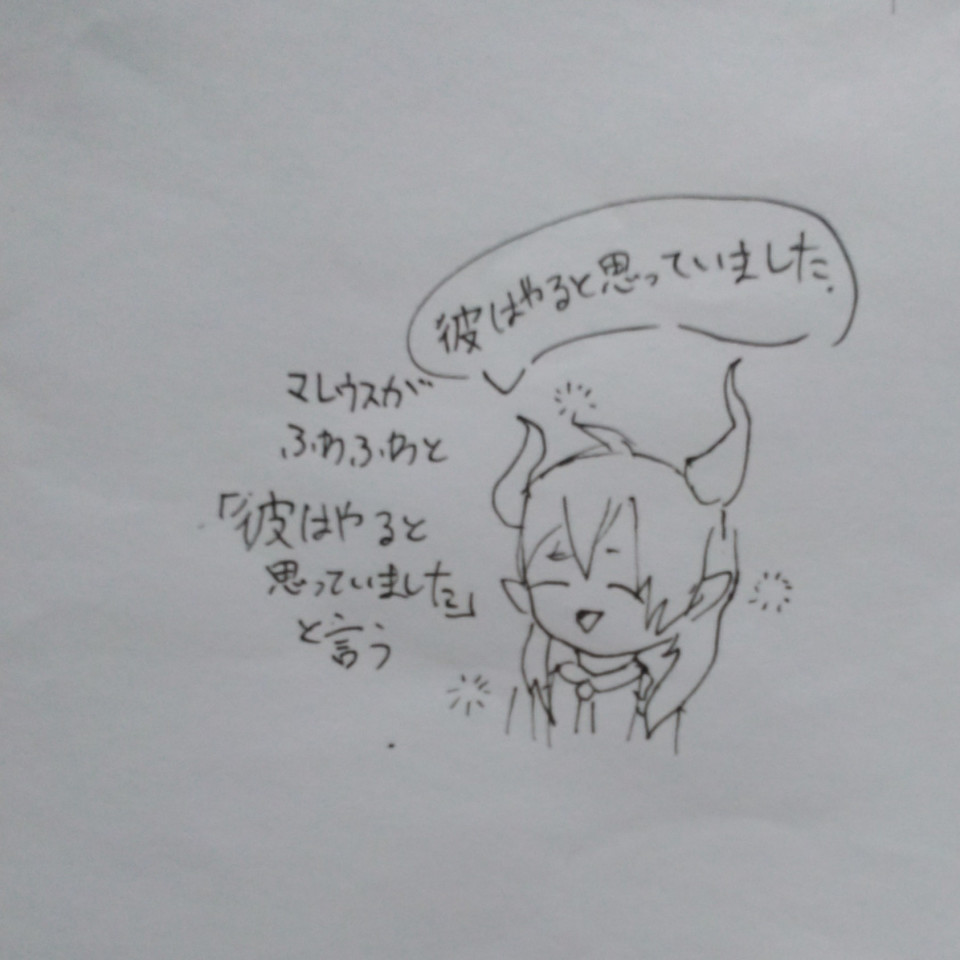 彼はやると思っていました.
マレウスが
ふわふわと
「彼はやると
思っていました」
と言う